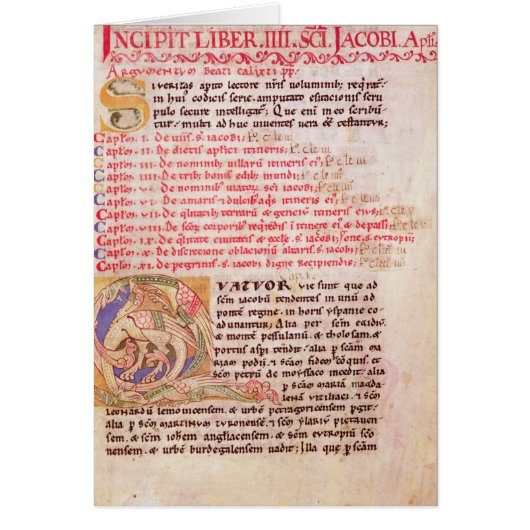 INCIPIT LIBER .IIII. SCI. JACOBI. Apli
Argumentum Beati calixti pp.
SI VERITAS apito lectore nris voluminib; reqrat.
in hui' codicis serie. amputato esitacionis scru
pulo secure intelligat'. Que eni in eo scribu
tur. multi ad huc viventes vera ee testantur;
Capłm. I. De viis. s. iacobi;
Capłm. II. De dietis aplici itineris;
Capłm. III. De nominib; villaru itineris ei';
Capłm. IIII. De trib; bonis edib; mundi;
Capłm. v. De nominib' viator sci iacobi;
Capłm. vI. De amaris & dulcib; aqs itineris ei';
Capłm. vII. De qlitatib; terraru & genciu itineris eius
Capłm. vIII. De scor corporib' reqredis i itinere ei' & de passi
Capłm. Ix. De qlitate civitatis & eccle. s. iacobi;
Capłm. x. De discretione oblacionu altaris. s. iacobi;
Capłm. xI. De pegrinis. s. iacobi digne recipiendis;
QVATVOR vie sunt que ad
scm iacobu tendentes in unu ad
ponte regine. in horis yspanie co
adunantur; Alia per scm egidiu.
& monte pessulanu. & tholosam. &
portus aspi tendit. alia p scam
mariam podii. & scam fidem coquis. & scm
petru de moyssaco incedit. alia
p scam maria magdale
na viziliaci. & scm
leonardu lemovicensem. & urbe petragoricensem pgit.
alia p scm martinum turonense. & scm ylariu pictaven
sem. & scm iohem angliacensem. & scm eutropiu scto
nensem. & urbe burdegalensem vadit; Illa que p scam